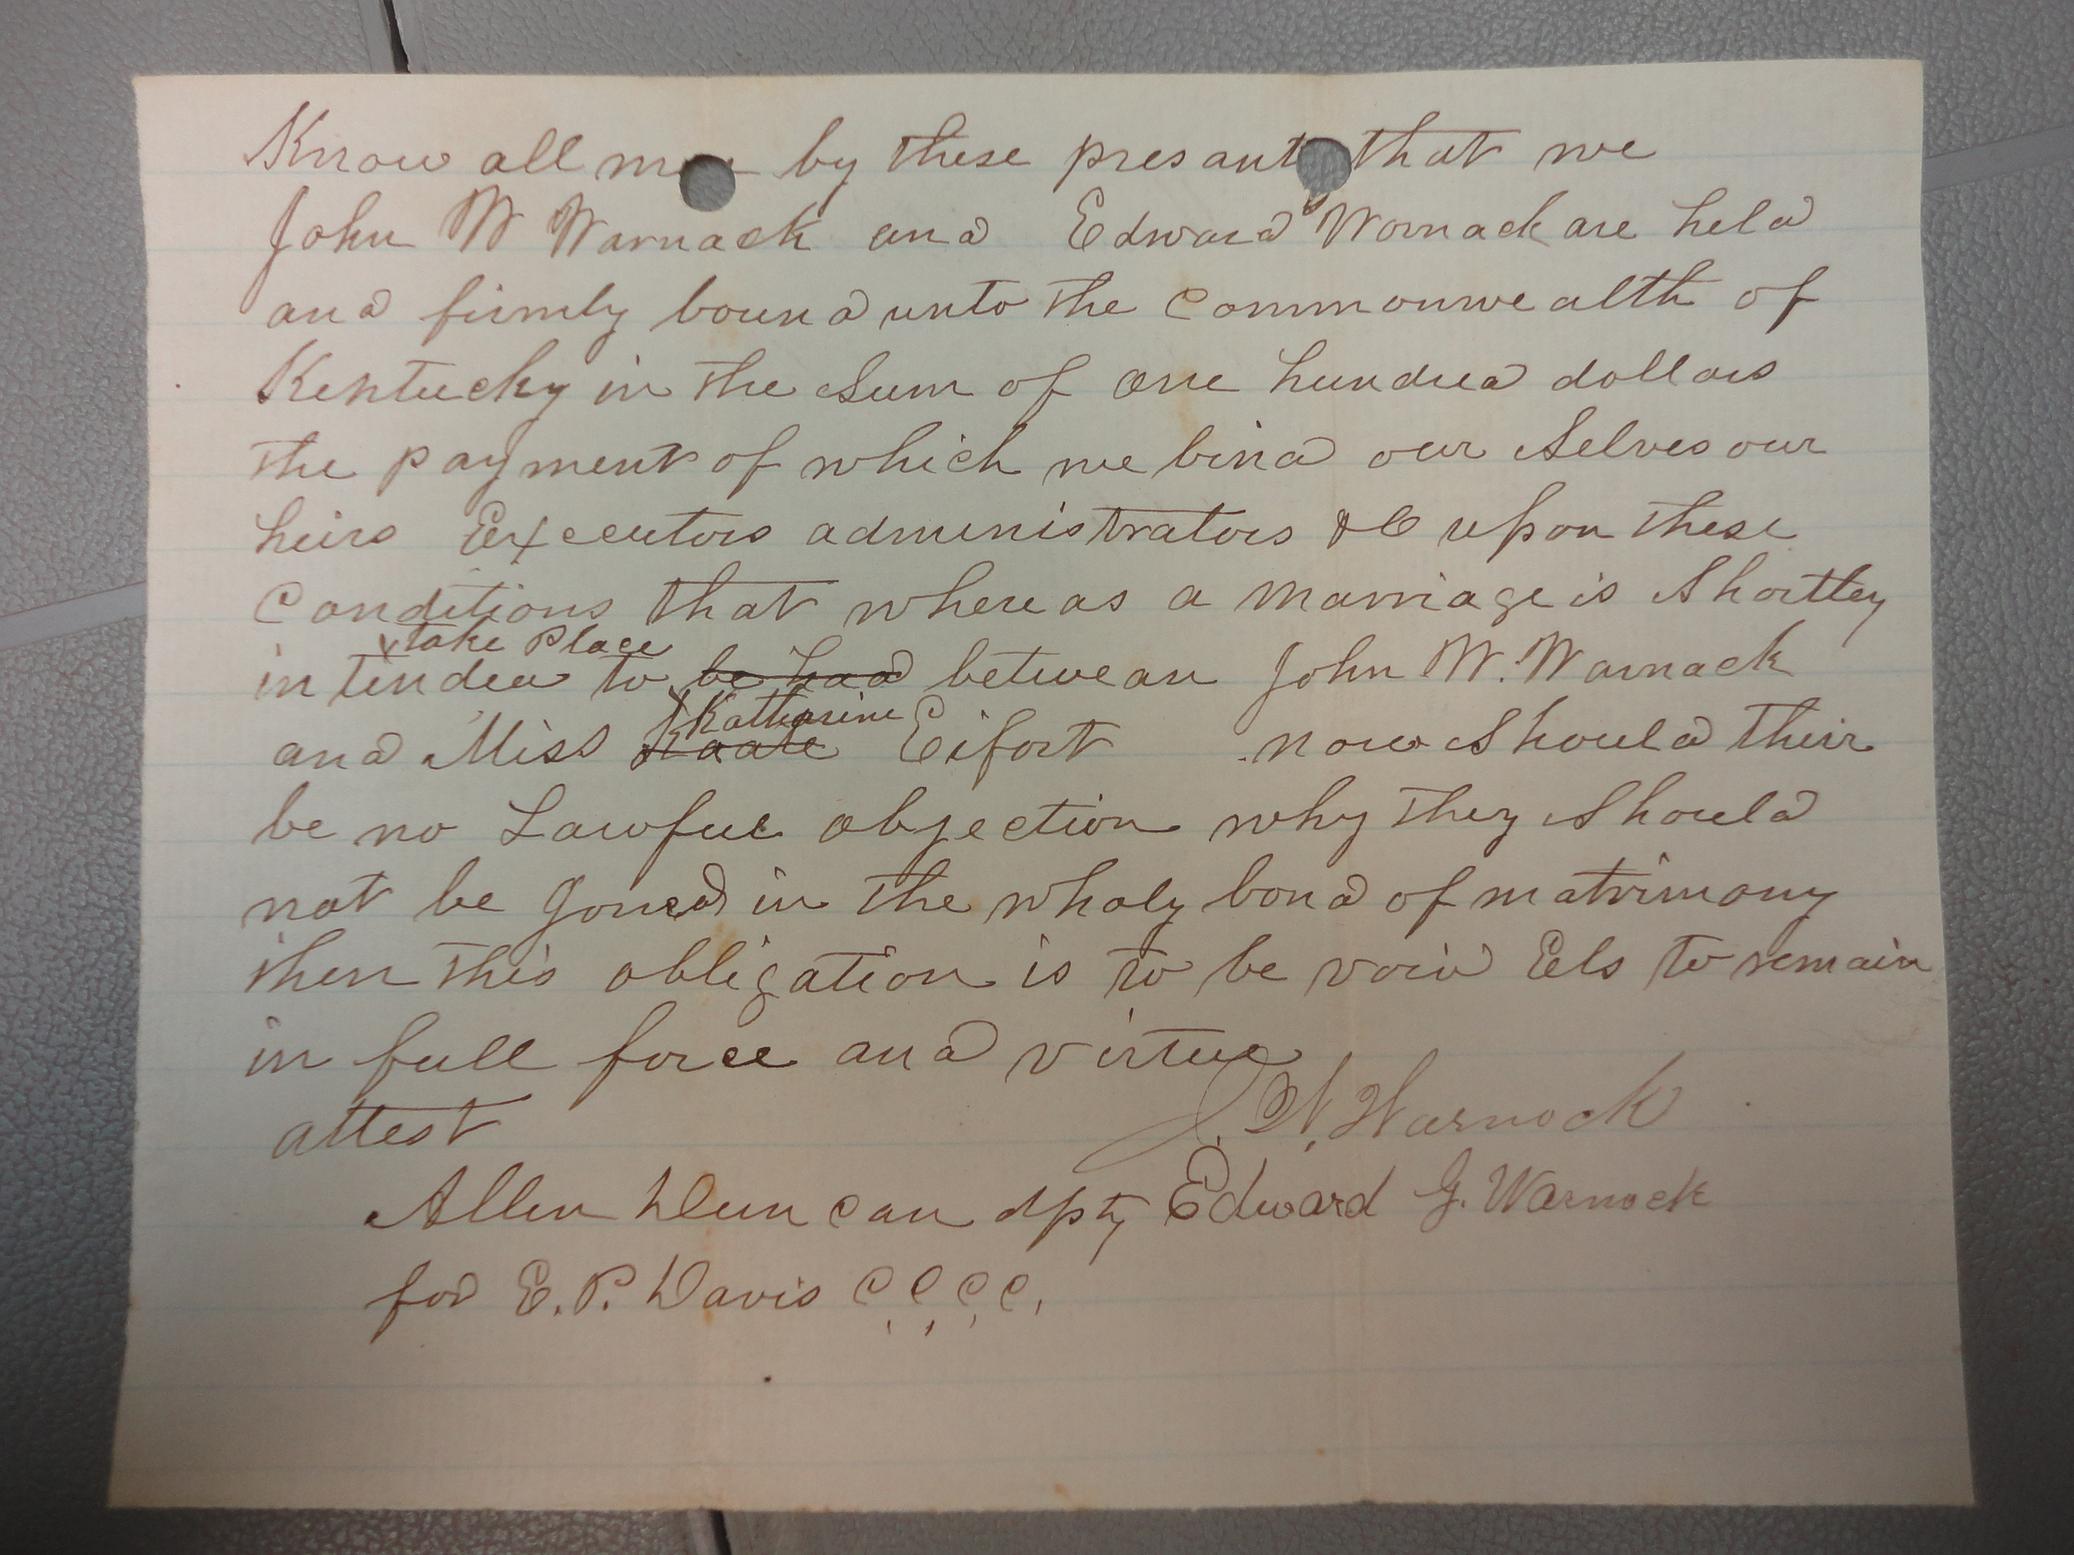 Know all men by these presants that we
John W Warnack and Edward Wornack are held
and firmly bound unto the Commonwealth of
Kentucky in the Sum of one hundred dollars
the payment of which we bind our Selves our
heirs Executors administrators &C upon these
Conditions that where as a marriage is Shortley
take Place
intended to be had betwean John W. Warnack
Katharine
and Miss Kaate Eifort now Should their
be no Lawful objection why they Should
not be Joned in the wholy bond of matrimony
then this obligation is to be void Els to remain
in full force and virtue
attest J. W. Warnock
Allen Duncan dpty Edward G. Warnock
for E. P. Davis C.C.C.C.